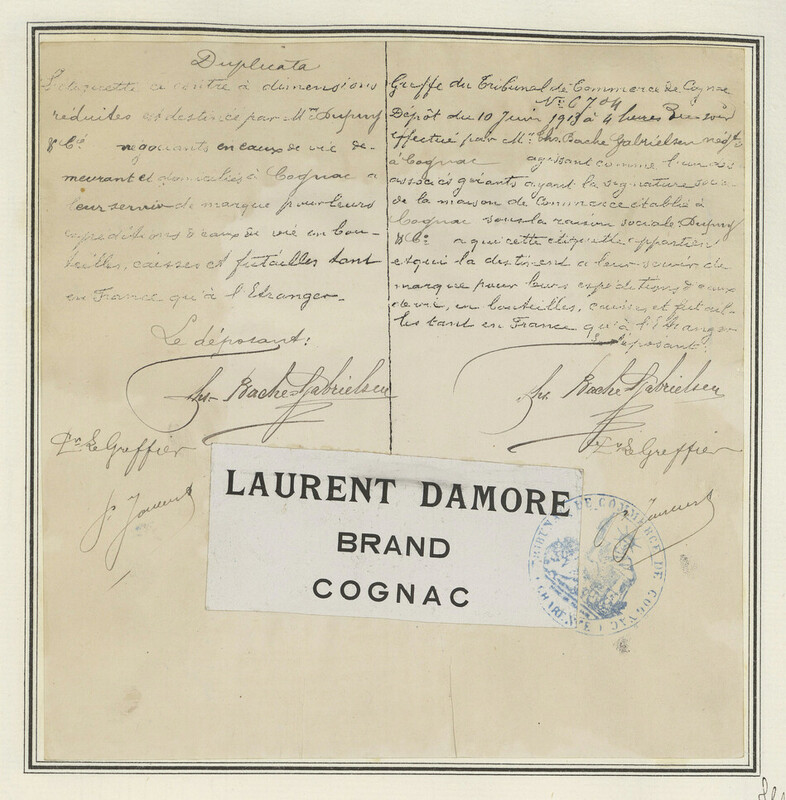 Duplicata
L'étiquette ci contre à dimensions
réduites est destinée par Mrs Dupuy
& Cie négociants en eaux de vie de-
meurant et domiciliés à Cognac a
leur servir de marque pour leurs
expéditions d'eaux de vie en bou-
teilles, caisses et futailles tant
en France qu'à l'Etranger.
Le déposant:
Chs. Bache-Gabrielsen
Pr Le Greffier
Greffe du Tribunal de Commerce de Cognac
No. 6704
Dépôt du 10 Juin 1913 à 4 heures du soir
effectué par Mr Chs. Bache Gabrielsen négt
à Cognac agissant comme l'un des
associés gérants ayant la signature
de la maison de Commerce établie à
Cognac sous la raison sociale Dupuy
& Cie a qui cette étiquette appartient
et qui la destinent a leur servir de
marque pour leurs expéditions d'eaux
de vie, en bouteilles, caisses et futail-
les tant en France qu'à l'Etranger
Le déposant:
Chs. Bache-Gabrielsen
Pr Le Greffier
LAURENT DAMORE
BRAND
COGNAC
TRIBUNAL DE COMMERCE DE COGNAC
(CHARENTE)